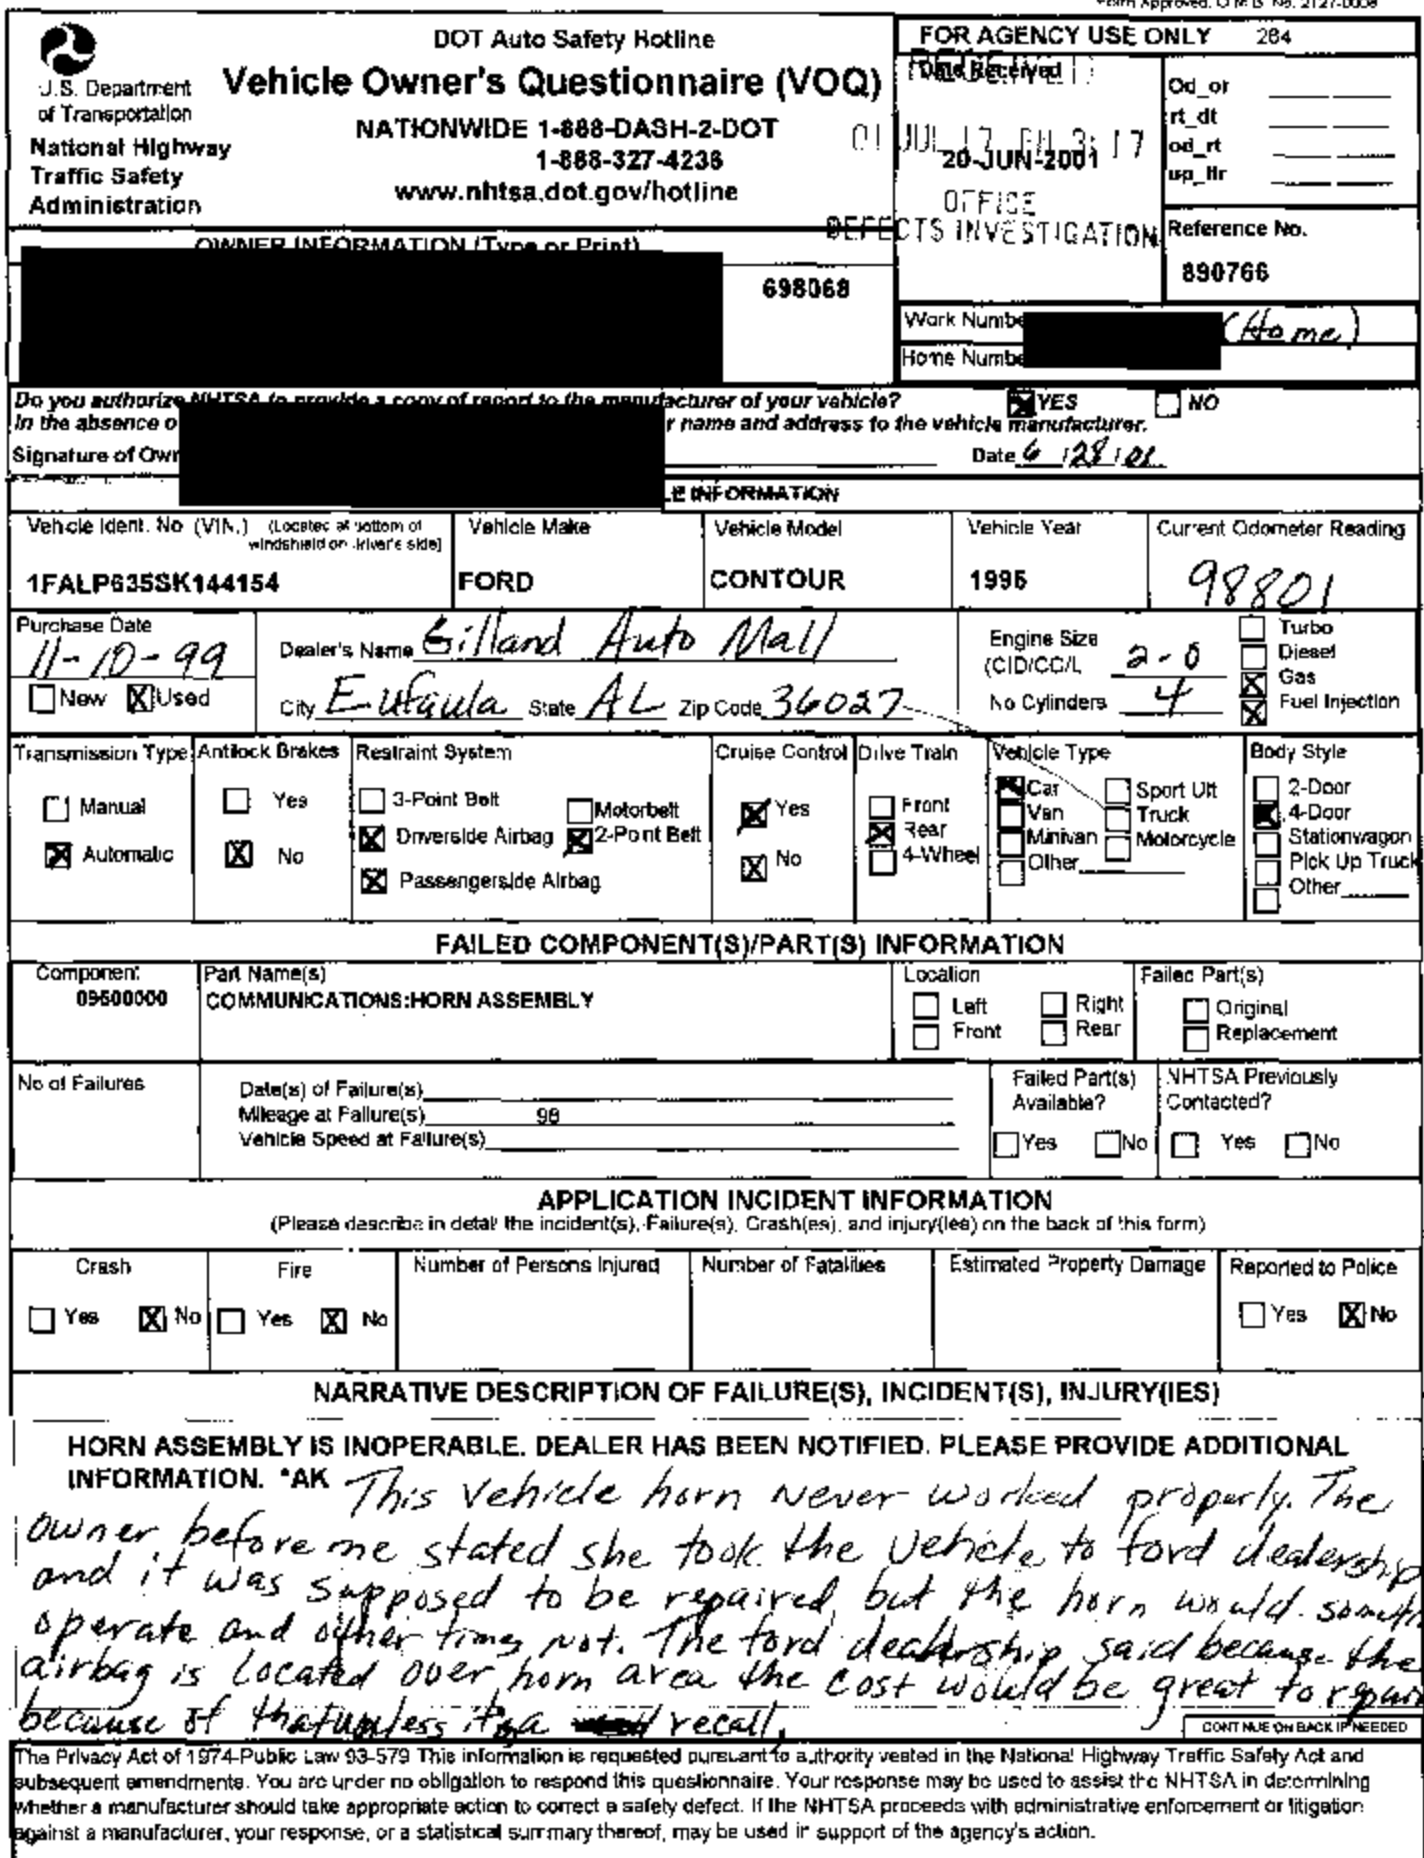 Form Approved. O.M.B. No. 2127-0008
U.S. Department
of Transportation
National Highway
Traffic Safety
Administration
DOT Auto Safety Hotline
Vehicle Owner's Questionnaire (VOQ)
NATIONWIDE 1-888-DASH-2-DOT
1-888-327-4236
www.nhtsa.dot.gov/hotline
FOR AGENCY USE ONLY 284
Date Received
01 JUL 17 3:17
20-JUN-2001
OFFICE
DEFECTS INVESTIGATION
Od_or
rt_dt
od_rt
up_ltr
Reference No.
890766
OWNER INFORMATION (Type or Print)
698068
Work Numbe (Home)
Home Numbe
Do you authorize NHTSA to provide a copy of report to the manufacturer of your vehicle? YES NO
In the absence o r name and address to the vehicle manufacturer.
Signature of Own Date 6/28/01
LE INFORMATION
Vehicle Ident. No (VIN.) (Located at bottom of
windshield on driver's side)
1FALP635SK144154
Vehicle Make
FORD
Vehicle Model
CONTOUR
Vehicle Year
1995
Current Odometer Reading
98801
Purchase Date
11-10-99
New Used
Dealer's Name Gilland Auto Mall
City Eufaula State AL Zip Code 36027
Engine Size
(CID/CC/L 2-0
No Cylinders 4
Turbo
Diesel
Gas
Fuel Injection
Transmission Type
Manual
Automatic
Antilock Brakes
Yes
No
Restraint System
3-Point Belt
Motorbelt
Driverside Airbag
2-Point Belt
Passengerside Airbag
Cruise Control
Yes
No
Drive Train
Front
Rear
4-Wheel
Vehicle Type
Car
Van
Minivan
Other
Sport Utt
Truck
Motorcycle
Body Style
2-Door
4-Door
Stationwagon
Pick Up Truck
Other
FAILED COMPONENT(S)/PART(S) INFORMATION
Component
09500000
Part Name(s)
COMMUNICATIONS:HORN ASSEMBLY
Location
Left Right
Front Rear
Failed Part(s)
Original
Replacement
No of Failures
Date(s) of Failure(s)
Mileage at Failure(s) 98
Vehicle Speed at Failure(s)
Failed Part(s)
Available?
Yes No
NHTSA Previously
Contacted?
Yes No
APPLICATION INCIDENT INFORMATION
(Please describe in detail the incident(s), Failure(s), Crash(es), and injury(ies) on the back of this form)
Crash
Yes No
Fire
Yes No
Number of Persons Injured
Number of Fatalities
Estimated Property Damage
Reported to Police
Yes No
NARRATIVE DESCRIPTION OF FAILURE(S), INCIDENT(S), INJURY(IES)
HORN ASSEMBLY IS INOPERABLE. DEALER HAS BEEN NOTIFIED. PLEASE PROVIDE ADDITIONAL
INFORMATION. *AK This vehicle horn never worked properly. The
owner before me stated she took the vehicle to ford dealership
and it was supposed to be repaired, but the horn would
operate and other times not. The ford dealership said because the
airbag is located over horn area the cost would be great to repair
because of that unless its a recall.
CONTINUE ON BACK IF NEEDED
The Privacy Act of 1974-Public Law 93-579 This information is requested pursuant to authority vested in the National Highway Traffic Safety Act and
subsequent amendments. You are under no obligation to respond this questionnaire. Your response may be used to assist the NHTSA in determining
whether a manufacturer should take appropriate action to correct a safety defect. If the NHTSA proceeds with administrative enforcement or litigation
against a manufacturer, your response, or a statistical summary thereof, may be used in support of the agency's action.